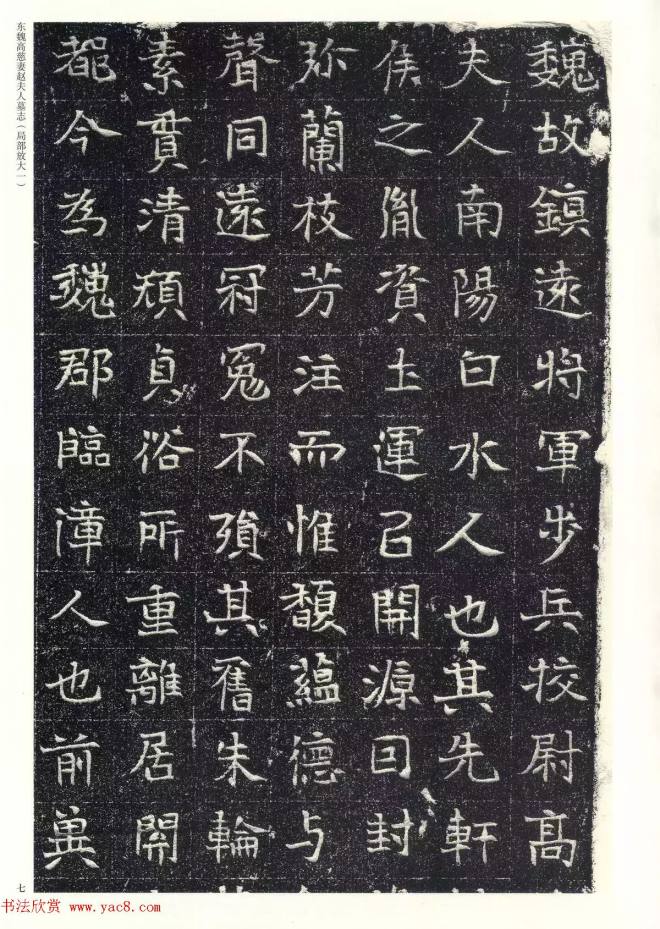 魏故鎮遠將軍步兵校尉高
夫人南陽白水人也其先軒
侯之胤資土運已開源囙封
珎蘭枝芳注而惟馥蘊德与
聲同遠冠冤不殞其舊朱輪
素貫清頹貞俗所重離居開
都今為魏郡臨漳人也前㒷
东魏高慈妻赵夫人墓志(局部放大一)
七
书法欣赏 www.yac8.com